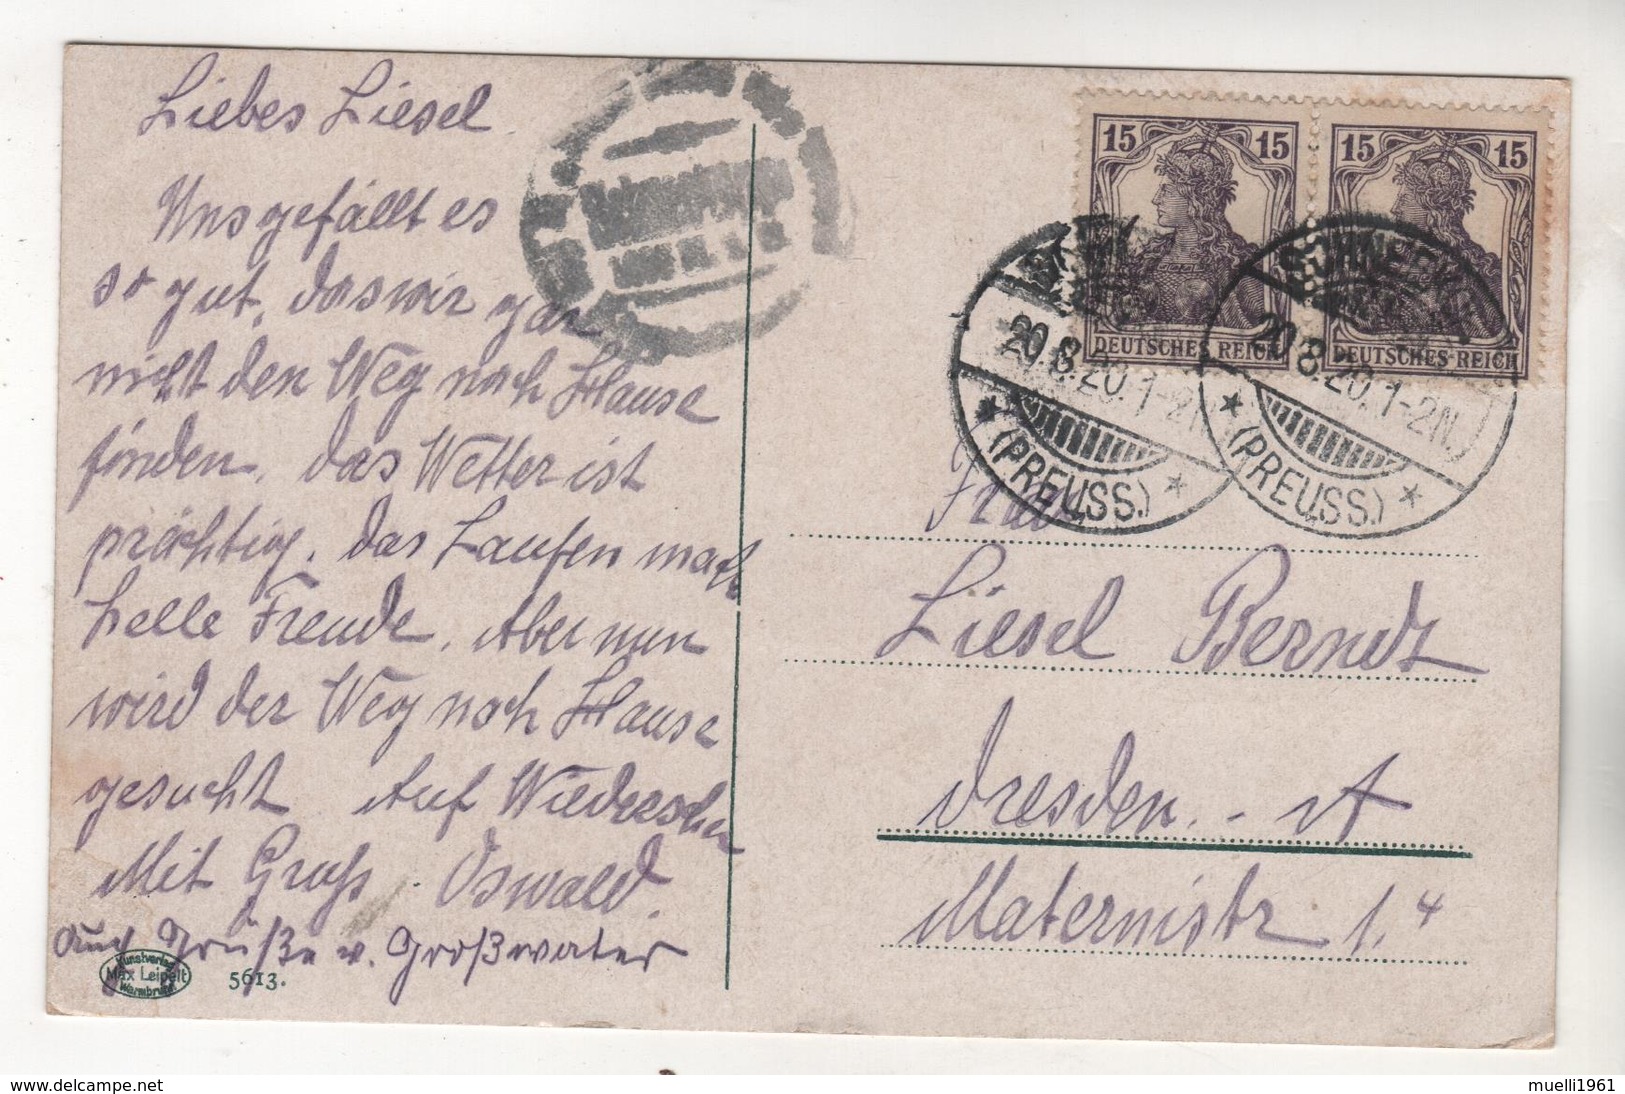 Liebes Liesel.
Uns gefällt es
so gut, das wir gar
nicht den Weg nach Hause
finden. Das Wetter ist
prächtig. Das Laufen macht
helle Freude. Aber nun
wird der Weg nach Hause
gesucht Auf Wiedersehen
Mit Gruß. Oswald.
Auch Grüße v. Großvater
Kunstverlag
Max Leipelt
Warmbrunn
5613.
15 15
DEUTSCHES REICH
15 15
DEUTSCHES REICH
20.8.20.1-2N.
* (PREUSS.) *
20.8.20.1-2N.
* (PREUSS.) *
Frau
Liesel Berndt
Dresden. - A
Maternistr 1.4
muelli1961